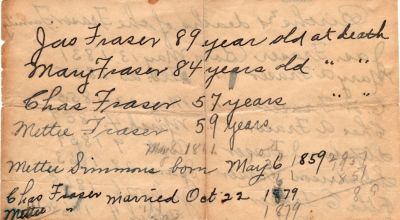 Jas Fraser 89 year old at death
Mary Fraser 84 years old " "
Chas Fraser 57 years " "
Mettie Fraser 59 years
Mettie Simmons born May 6 1859
Chas Fraser married Oct 22 1879
Mettie " 1879